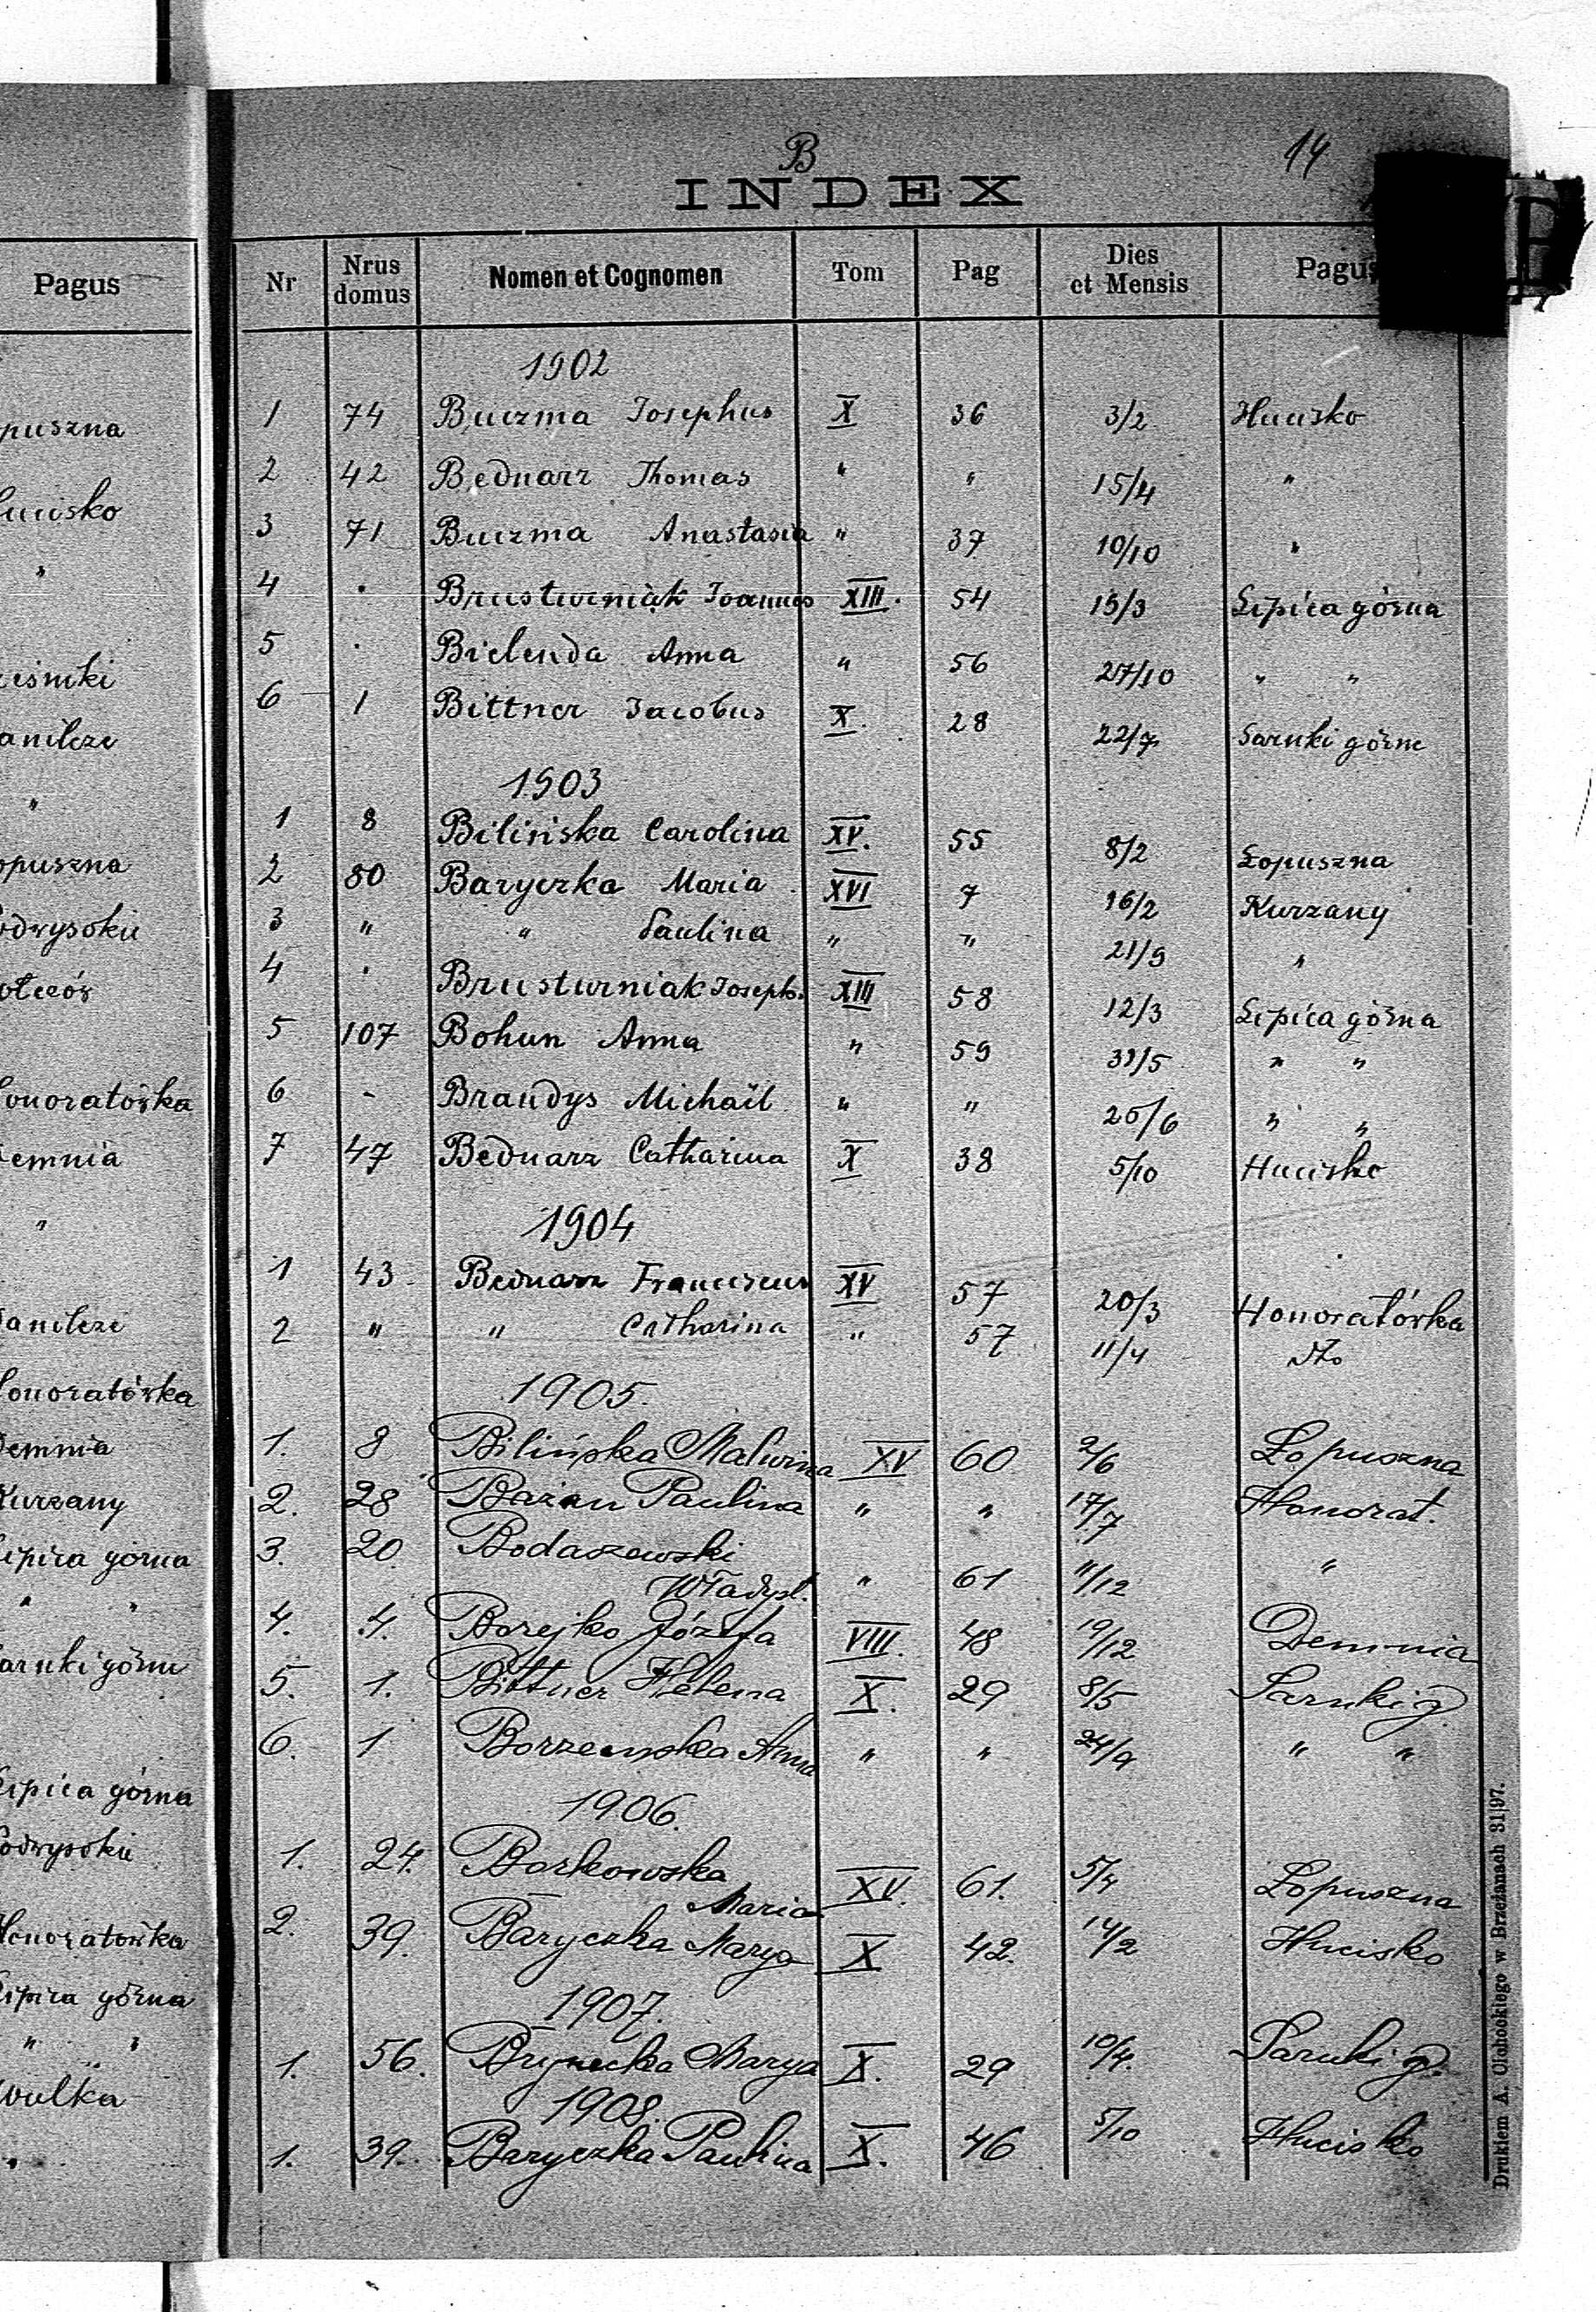 Pagus
puszna
ucisko
"
eśniki
anilcze
"
opuszna
odwysokie
otców
onoratówka
emnia
"
anilcze
onoratówka
Demnia
Kurzany
ipica górna
" "
arnki górne
Lipica górna
odwysokie
Honoratówka
Lipica górna
" "
Wulka
"
B
14
INDEX
Nr Nrus domus Nomen et Cognomen Tom Pag Dies et Mensis Pagus
B
1902
1 74 Buczma Josephus X 36 3/2 Hucisko
2 42 Bednarz Thomas " " 15/4 "
3 71 Buczma Anastasia " 37 10/10 "
4 . Brusturniak Joannes XIII. 54 15/3 Lipica górna
5 . Bielenda Anna " 56 27/10 " "
6 1 Bittner Jacobus X. 28 22/7 Sarnki górne
1903
1 8 Bilińska Carolina XV. 55 8/2 Łopuszna
2 80 Baryczka Maria XVI 7 16/2 Kurzany
3 " " Paulina " " 21/9 "
4 . Brusturniak Joseph. XIII 58 12/3 Lipica górna
5 107 Bohun Anna " 59 31/5 " "
6 - Brandys Michaël " " 25/6 " "
7 47 Bednarz Catharina X 38 5/10 Hucisko
1904
1 43 Bednarz Franciscus XV 57 20/3 Honoratówka
2 " " Catharina " 57 11/4 dto
1905.
1. 8 Bilińska Malwina XV 60 2/6 Łopuszna
2. 28 Bażan Paulina " " 17/7 Honorat.
3. 20 Bodaszewski
Władysł. " 61 11/12 "
4. 4. Borejko Józefa VIII. 48 19/12 Demnia
5. 1. Bittner Helena X. 29 8/5 Sarnki g.
6. 1 Borzemska Anna " " 24/9 " "
1906.
1. 24. Borkowska
Maria XV. 61. 5/4 Łopuszna
2. 39. Baryczka Marya X 42. 14/2 Hucisko
1907.
1. 56. Marya X. 29 10/4. Sarnki g.
1908.
1. 39. Baryczka Paulina X. 46 5/10 Hucisko
Drukiem A. Olohockiego w Brzeżanach 31|97.